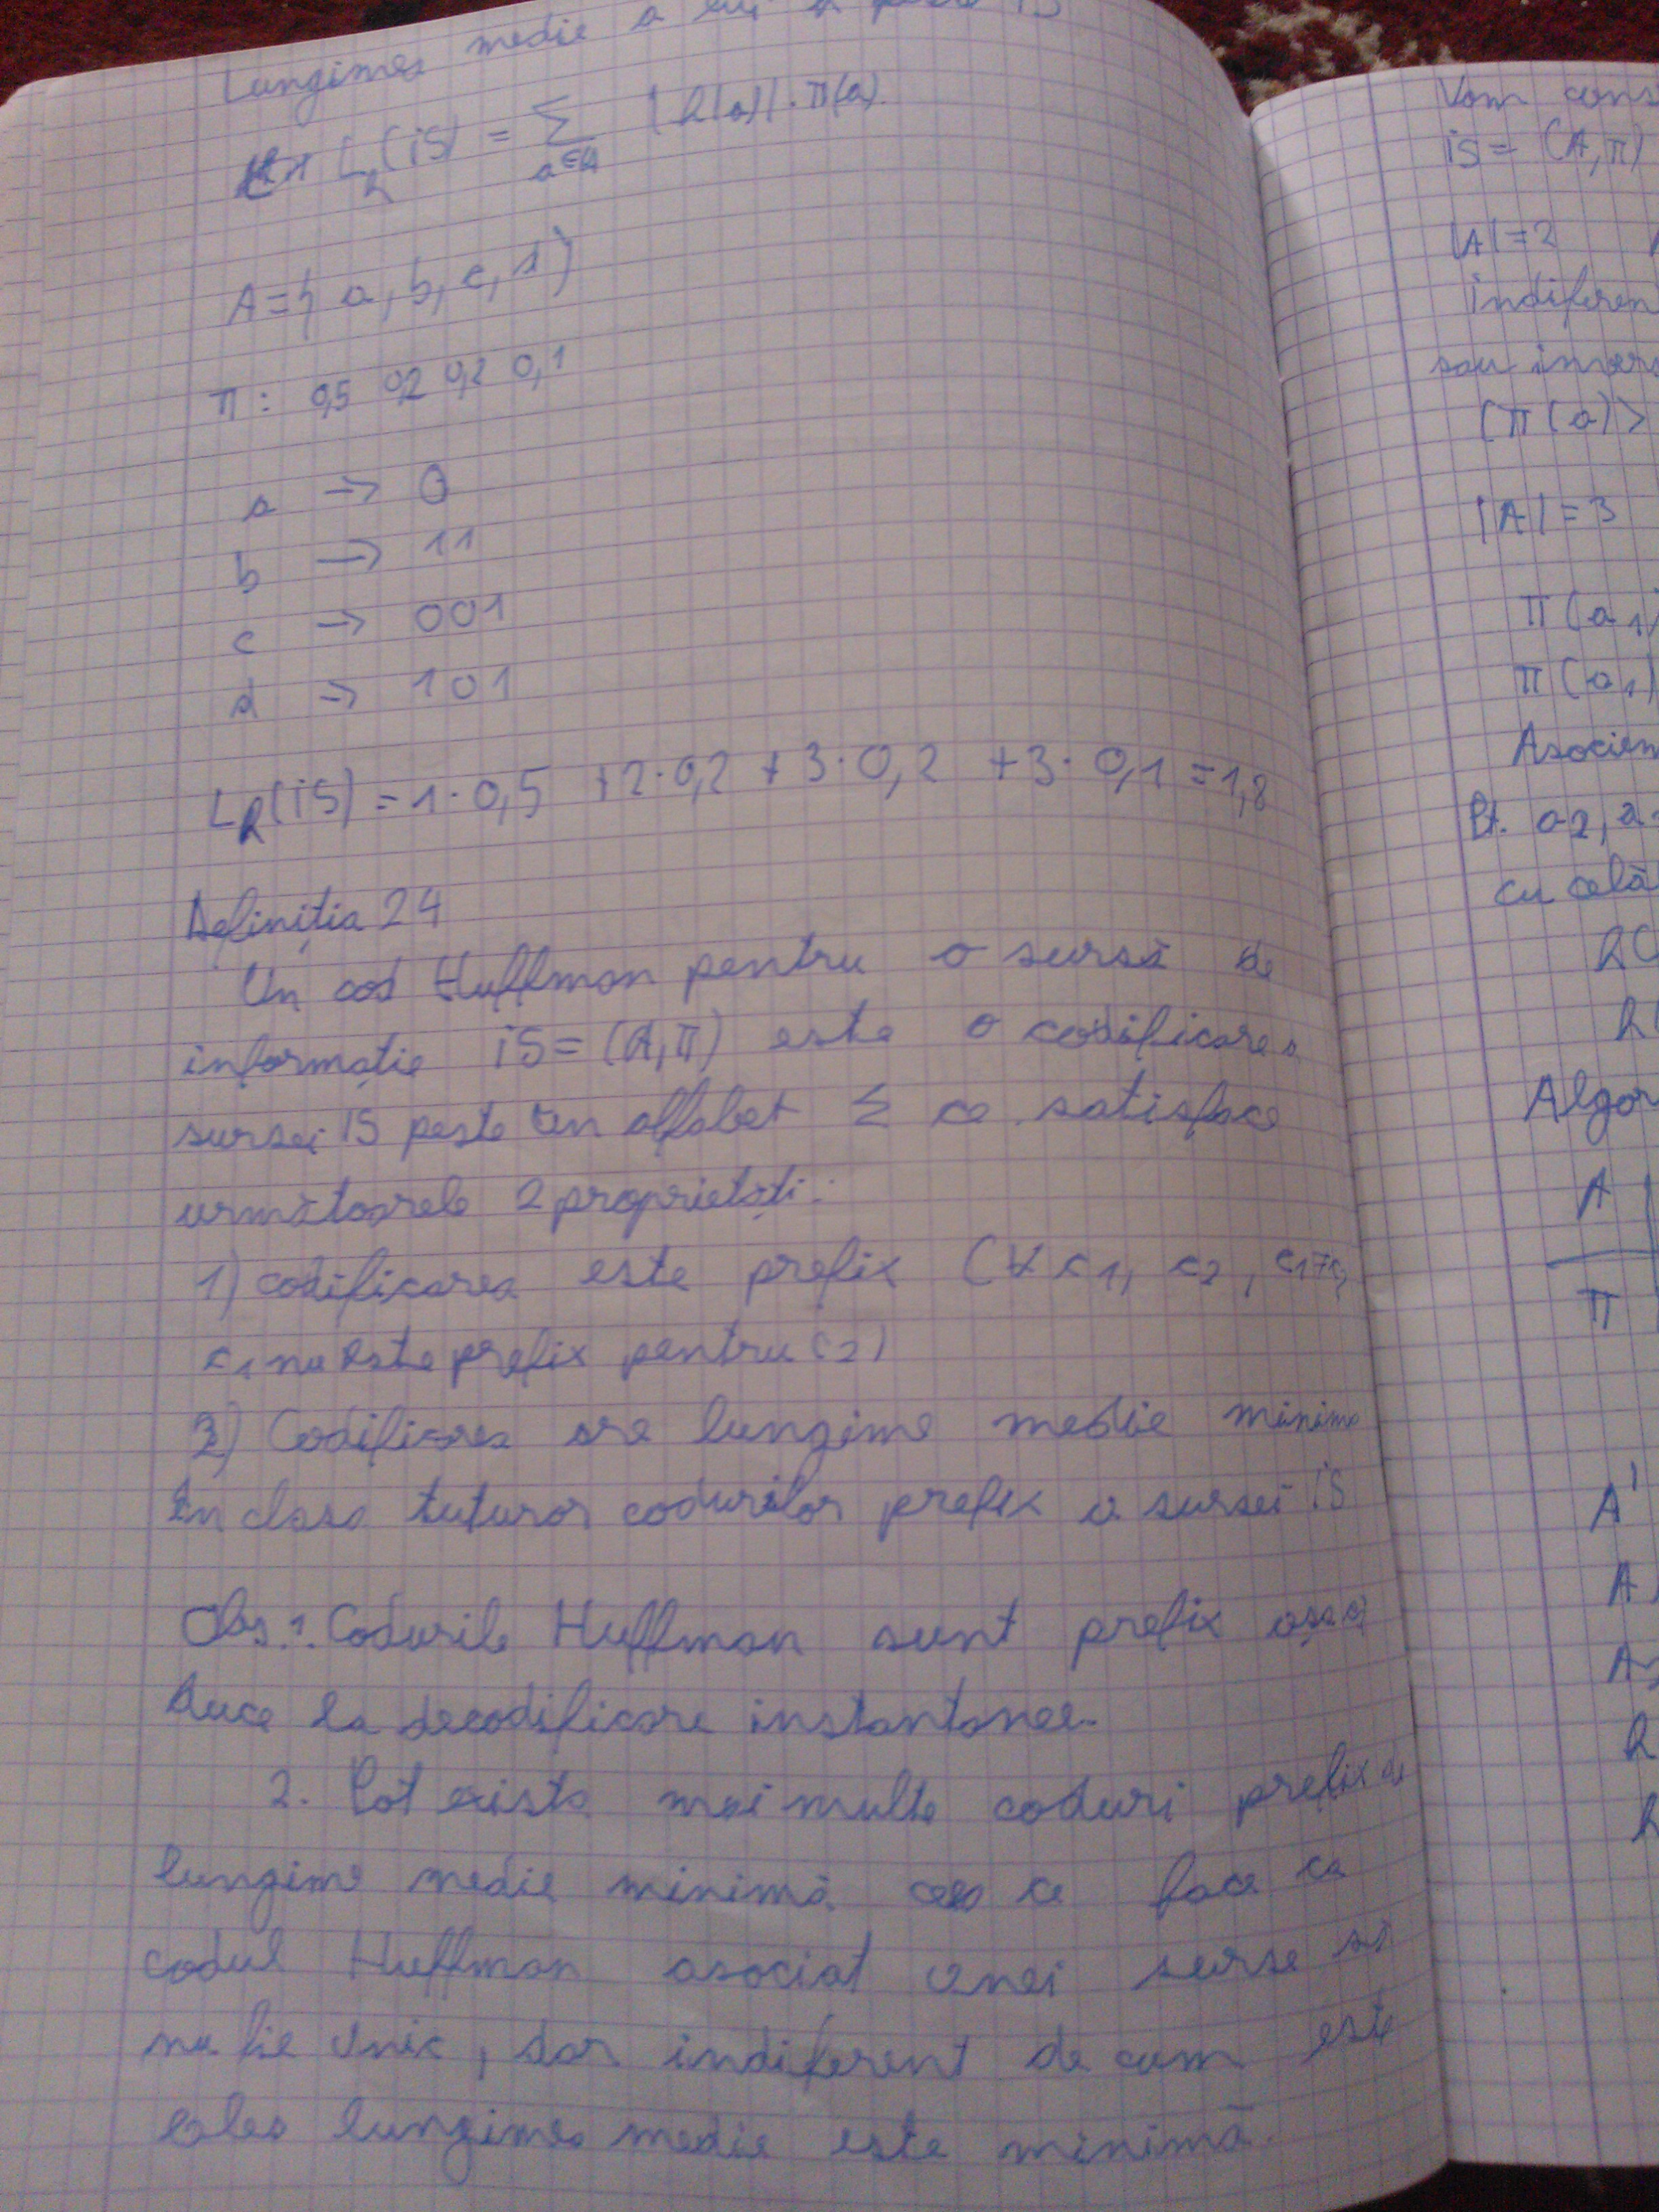 Lungimea medie a lui h peste IS
L_h(IS) = Σ_{a∈A} |h(a)|·π(a).
A={a,b,c,d}
π: 0,5 0,2 0,2 0,1
a → 0
b → 11
c → 001
d → 101
L_h(IS) = 1·0,5 +2·0,2 +3·0,2 +3·0,1 =1,8
Definiția 24
Un cod Huffman pentru o sursă de
informație IS=(A,π) este o codificare a
sursei IS peste un alfabet Σ ce satisface
următoarele 2 proprietăți:
1) codificarea este prefix (∀ c1, c2, c1≠c2
c1 nu este prefix pentru c2)
2) Codificarea are lungime medie minimă
în clasa tuturor codurilor prefix a sursei IS
Obs.1. Codurile Huffman sunt prefix așa că
duce la decodificare instantanee.
2. Pot exista mai multe coduri prefix de
lungime medie minimă ceea ce face ca
codul Huffman asociat unei surse să
nu fie unic, dar indiferent de cum este
ales lungimea medie este minimă.
Vom cons
IS= (A,π)
|A|=2
Indiferent
sau invers
(π(a)>
|A|=3
π(a1)
π(a1)
Asociem
Pt. a2, a
cu celă
h(
h(
Algor
A
π
A'
A
A
h
h